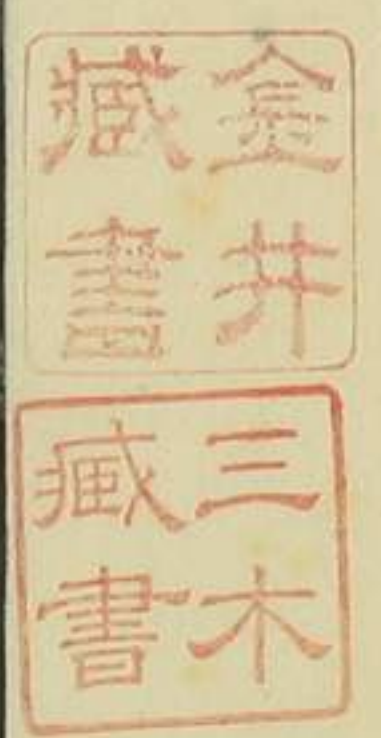 金井
藏書
三木
藏書